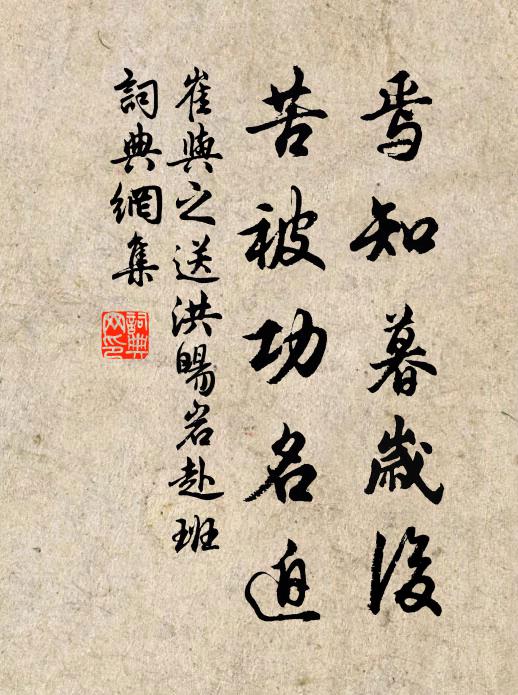 焉知暮歲後
苦被功名迫
崔與之送洪暘岩赴班
詞典網集
詞典網印